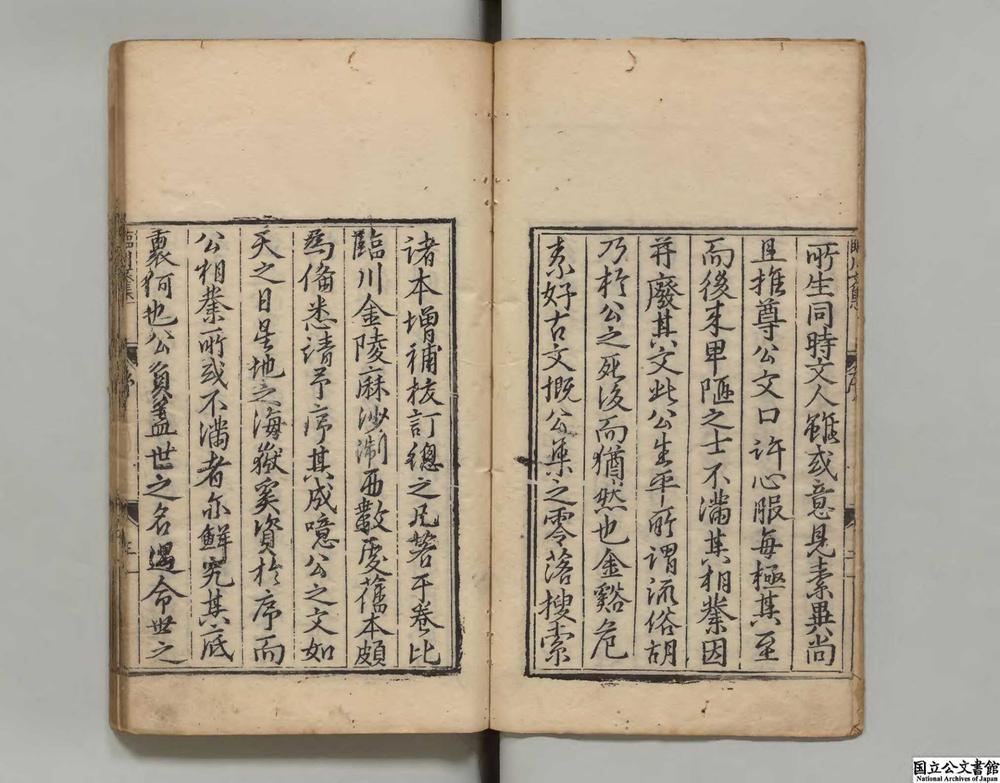 所生同時文人雖或意見素異尚
且推尊公文口許心服每極其至
而後来卑陋之士不滿其相業因
并廢其文此公生平所謂流俗胡
乃於公之死後而猶然也金谿危
素好古文慨公集之零落搜索
諸本增補挍訂總之凡若干卷比
臨川金陵麻沙浙西數處舊本頗
為偹悉請予序其成噫公之文如
天之日星地之海嶽奚資於序而
公相業所或不滿者亦鮮究其底
裏何也公負蓋世之名遇命世之
臨川文集
序
二
臨川文集
序
三
国立公文書館
National Archives of Japan